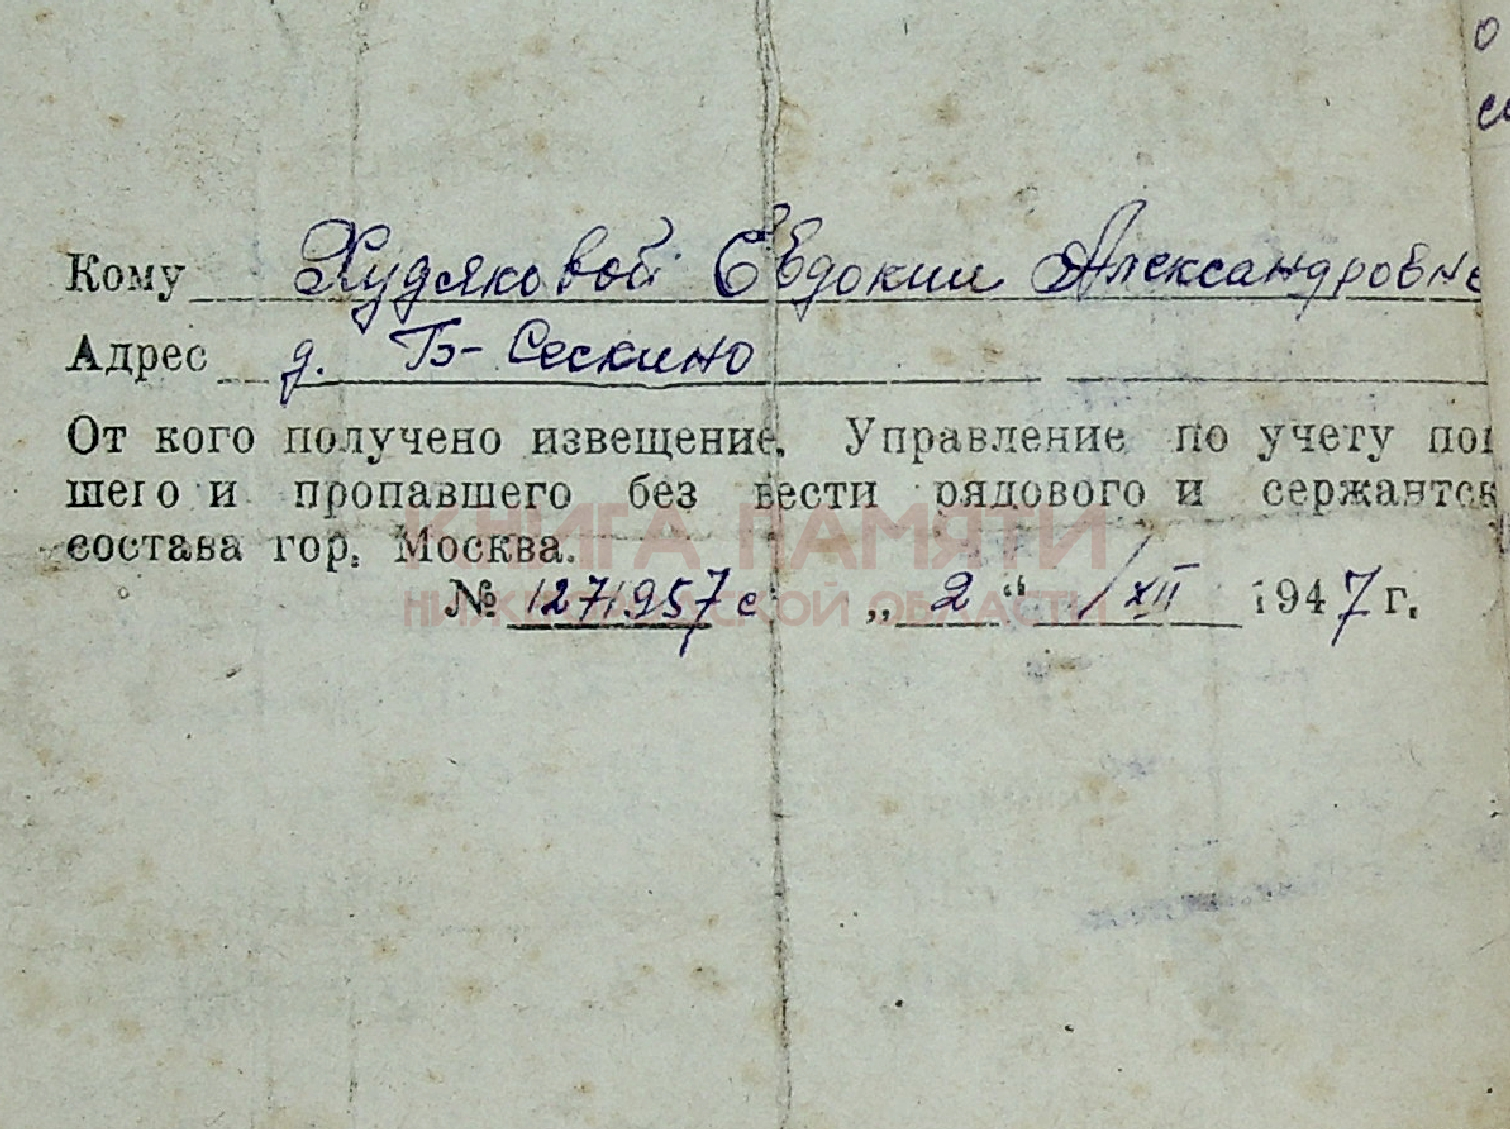 о
Кому Худяковой Евдокии Александровне
Адрес д. Б-Сескино
От кого получено извещение. Управление по учету пог
шего и пропавшего без вести рядового и сержантск
состава гор. Москва.
КНИГА ПАМЯТИ
№ 1271957с „2“ XII 1947 г.
НИЖЕГОРОДСКОЙ ОБЛАСТИ